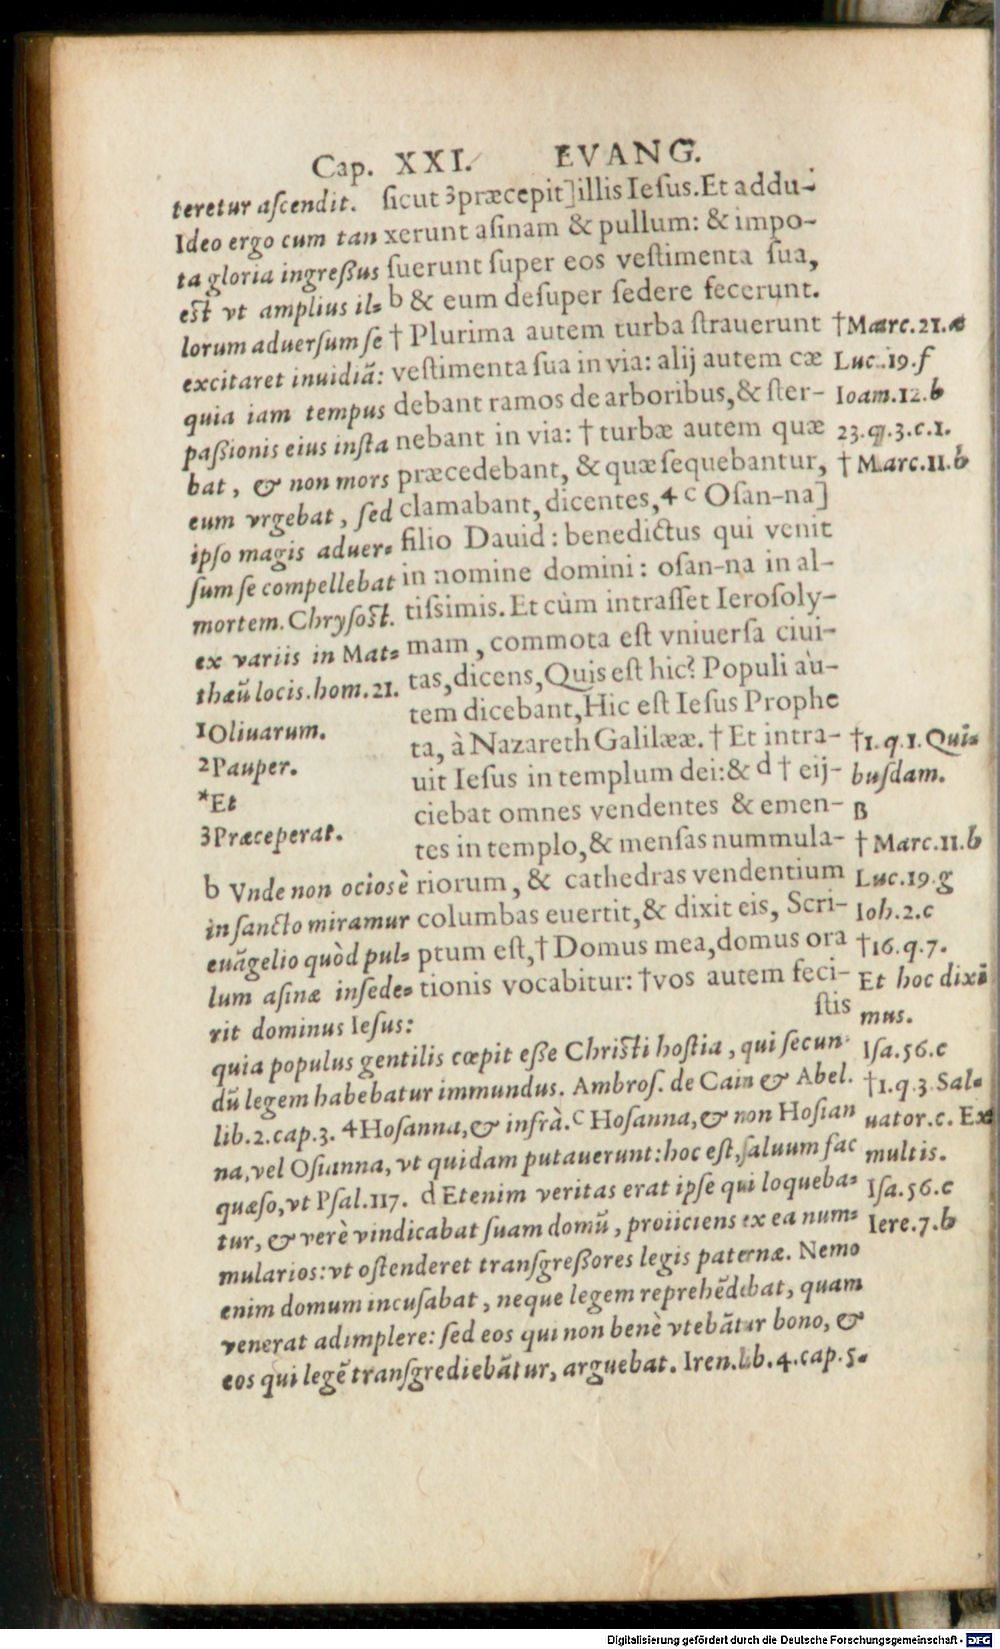 Cap. XXI. EVANG.
teretur aſcendit.
Ideo ergo cum tan
ta gloria ingreßus
eſt vt amplius il=
lorum aduerſum ſe
excitaret inuidiã:
quia iam tempus
paßionis eius inſta
bat, & non mors
eum vrgebat, ſed
ipſo magis aduer=
ſum ſe compellebat
mortem. Chryſoſt.
ex variis in Mat=
thæũ locis. hom. 21.
1Oliuarum.
2Pauper.
*Et
3Præceperat.
b Vnde non ociosè
in ſancto miramur
euãgelio quòd pul=
lum aſinæ inſede=
rit dominus Ieſus:
ſicut 3præcepit]illis Ieſus. Et addu-
xerunt aſinam & pullum: & impo-
ſuerunt ſuper eos veſtimenta ſua,
b & eum deſuper ſedere fecerunt.
† Plurima autem turba ſtrauerunt
veſtimenta ſua in via: alij autem cæ
debant ramos de arboribus, & ſter-
nebant in via: † turbæ autem quæ
præcedebant, & quæ ſequebantur,
clamabant, dicentes, 4 c Oſan-na]
filio Dauid: benedictus qui venit
in nomine domini: oſan-na in al-
tiſsimis. Et cùm intraſſet Ieroſoly-
mam, commota eſt vniuerſa ciui-
tas, dicens, Quis eſt hic? Populi au-
tem dicebant, Hic eſt Ieſus Prophe
ta, à Nazareth Galilææ. † Et intra-
uit Ieſus in templum dei: & d † eij-
ciebat omnes vendentes & emen-
tes in templo, & menſas nummula-
riorum, & cathedras vendentium
columbas euertit, & dixit eis, Scri-
ptum eſt, † Domus mea, domus ora
tionis vocabitur: †vos autem feci-
ſtis
†Marc. 21. a
Luc. 19. f
Ioam. 12. b
23. q. 3. c. 1.
† Marc. 11. b
†1. q. 1. Qui=
buſdam.
B
† Marc. 11. b
Luc. 19. g
Ioh. 2. c
†16. q. 7.
Et hoc dixi
mus.
Iſa. 56. c
†1. q. 3. Sal=
uator. c. Ex
multis.
Iſa. 56. c
Iere. 7. b
quia populus gentilis cœpit eße Chriſti hoſtia, qui ſecun
dũ legem habebatur immundus. Ambroſ. de Cain & Abel.
lib. 2. cap. 3. 4Hoſanna, & infrà. c Hoſanna, & non Hoſian
na, vel Oſianna, vt quidam putauerunt: hoc eſt, ſaluum fac
quæſo, vt Pſal. 117. d Etenim veritas erat ipſe qui loqueba=
tur, & verè vindicabat ſuam domũ, proiiciens ex ea num=
mularios: vt oſtenderet tranſgreßores legis paternæ. Nemo
enim domum incuſabat, neque legem reprehẽdebat, quam
venerat adimplere: ſed eos qui non benè vtebãtur bono, &
eos qui legẽ tranſgrediebãtur, arguebat. Iren. lib. 4. cap. 5.
Digitalisierung gefördert durch die Deutsche Forschungsgemeinschaft - DFG